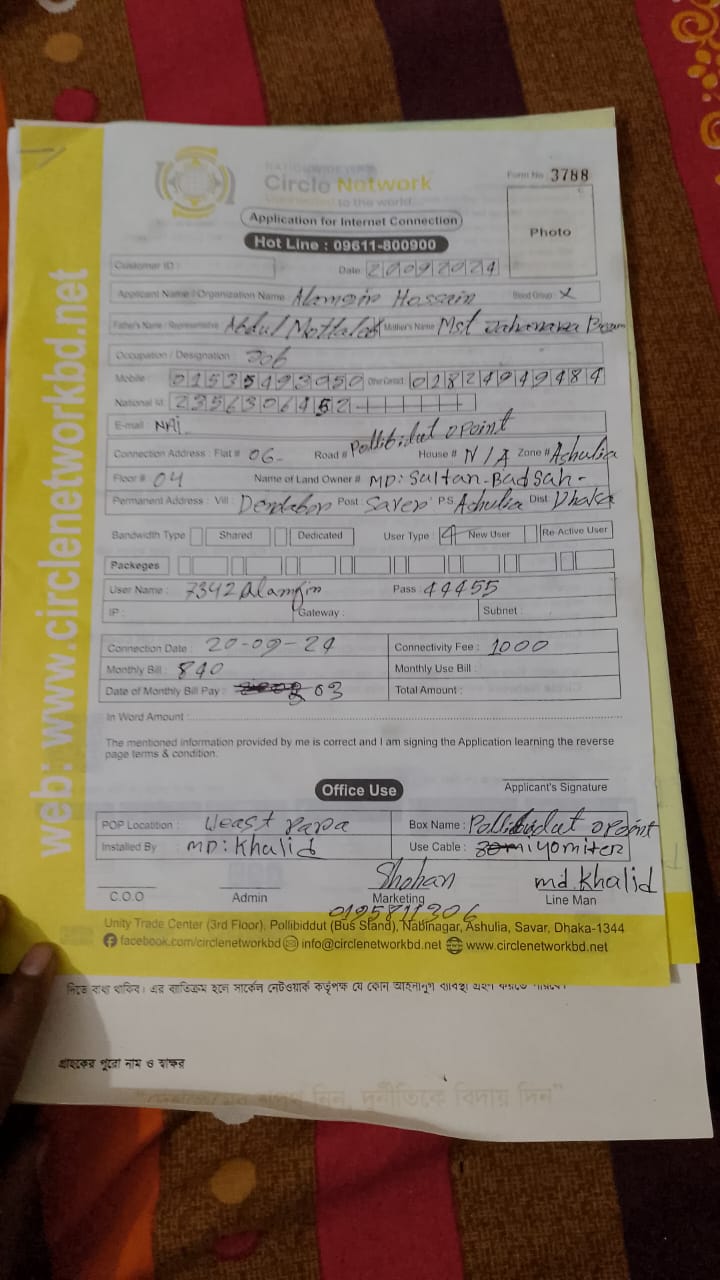 web: www.circlenetworkbd.net
NATIONWIDE ISP
Circle Network
Connected to the world...
Form No 3788
Application for Internet Connection
Hot Line : 09611-800900
Photo
Customer ID :
Date 20092024
Applicant Name / Organization Name Alamgir Hossain Blood Group: X
Father's Name / Representative Abdul Mothalab Mother's Name Mst Jahanara Begum
Occupation / Designation : Job
Mobile : 01535493950 Other Contact : 01824949484
National Id. 2356306452
E-mail :
Connection Address : Flat # 06 Road # Pollibidut 2 Point House # N/A Zone # Ashulia
Floor # 04 Name of Land Owner # MD: Sultan-Badsah-
Permanent Address : Vill : Dendabor Post : Saver PS Ashulia Dist Dhaka
Bandwidth Type Shared Dedicated User Type New User Re-Active User
Packeges
User Name : 7342 Alamgin Pass : 44455
IP : Gateway : Subnet :
Connection Date : 20-09-24 Connectivity Fee : 1000
Monthly Bill : 840 Monthly Use Bill :
Date of Monthly Bill Pay : 03 Total Amount :
In Word Amount :
The mentioned information provided by me is correct and I am signing the Application learning the reverse
page terms & condition.
Applicant's Signature
Office Use
POP Locatition : Weast Para Box Name : Pollibidut 2 Point
Installed By : MD: Khalid Use Cable :
Shohan md. Khalid
C.O.O Admin Marketing Line Man
0195811306
Unity Trade Center (3rd Floor), Pollibiddut (Bus Stand), Nabinagar, Ashulia, Savar, Dhaka-1344
facebook.com/circlenetworkbd info@circlenetworkbd.net www.circlenetworkbd.net
দিতে বাধ্য থাকিব। এর ব্যতিক্রম হলে সার্কেল নেটওয়ার্ক কর্তৃপক্ষ যে কোন আইনানুগ ব্যবস্থা গ্রহণ করতে পারিবে।
গ্রাহকের পুরো নাম ও স্বাক্ষর
দিন, দুর্নীতিকে বিদায় দিন"